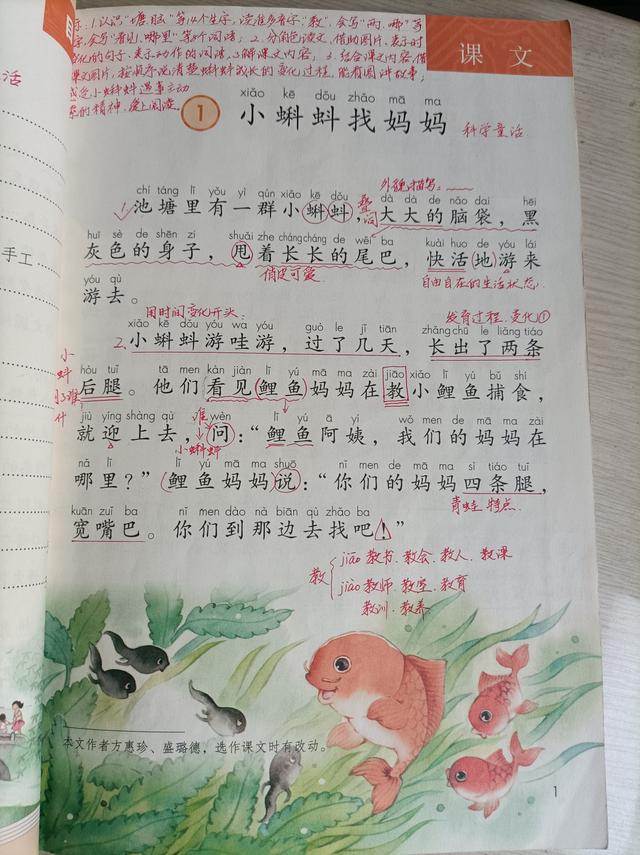 示：1.认识“塘、脑”等14个生字，读准多音字“教”，会写“两、哪”等
字，会写“看见、哪里”等 词语；2.分角色读课文，借助图片、表示时
变化的句子、表示动作的词语，了解课文内容；3.结合课文内容，借
课文图片，按顺序说清楚蝌蚪成长的变化过程，能看图讲故事；
感受小蝌蚪遇事主动
的精神，爱上阅读。
课文
xiǎo kē dǒu zhǎo mā ma
1 小蝌蚪找妈妈
科学童话
外貌描写：
chí táng lǐ yǒu yì qún xiǎo kē dǒu dà dà de nǎo dai hēi
1. 池塘里有一群小蝌蚪，大大的脑袋，黑
叠词
huī sè de shēn zi shuǎi zhe cháng cháng de wěi ba kuài huo de yóu lái
灰色的身子，甩着长长的尾巴，快活地游来
俏皮可爱
自由自在的生活状态
yóu qù
游去。
用时间变化开头
发育过程、变化①
xiǎo kē dǒu yóu wa yóu guò le jǐ tiān zhǎng chū le liǎng tiáo
2. 小蝌蚪游哇游，过了几天，长出了两条
hòu tuǐ tā men kàn jiàn lǐ yú mā ma zài jiāo xiǎo lǐ yú bǔ shí
后腿。他们看见鲤鱼妈妈在教小鲤鱼捕食，
小
蝌
蚪
什
jiù yíng shàng qù wèn lǐ yú ā yí wǒ men de mā ma zài
就迎上去，问：“鲤鱼阿姨，我们的妈妈在
谁
小蝌蚪
nǎ lǐ lǐ yú mā ma shuō nǐ men de mā ma sì tiáo tuǐ
哪里？”鲤鱼妈妈说：“你们的妈妈四条腿，
青蛙 特点
kuān zuǐ ba nǐ men dào nà biān qù zhǎo ba
宽嘴巴。你们到那边去找吧！”
教
jiāo 教书、教会、教人、教课
jiào 教师、教室、教育
教训、教养
本文作者方惠珍、盛璐德，选作课文时有改动。
1
活
手工